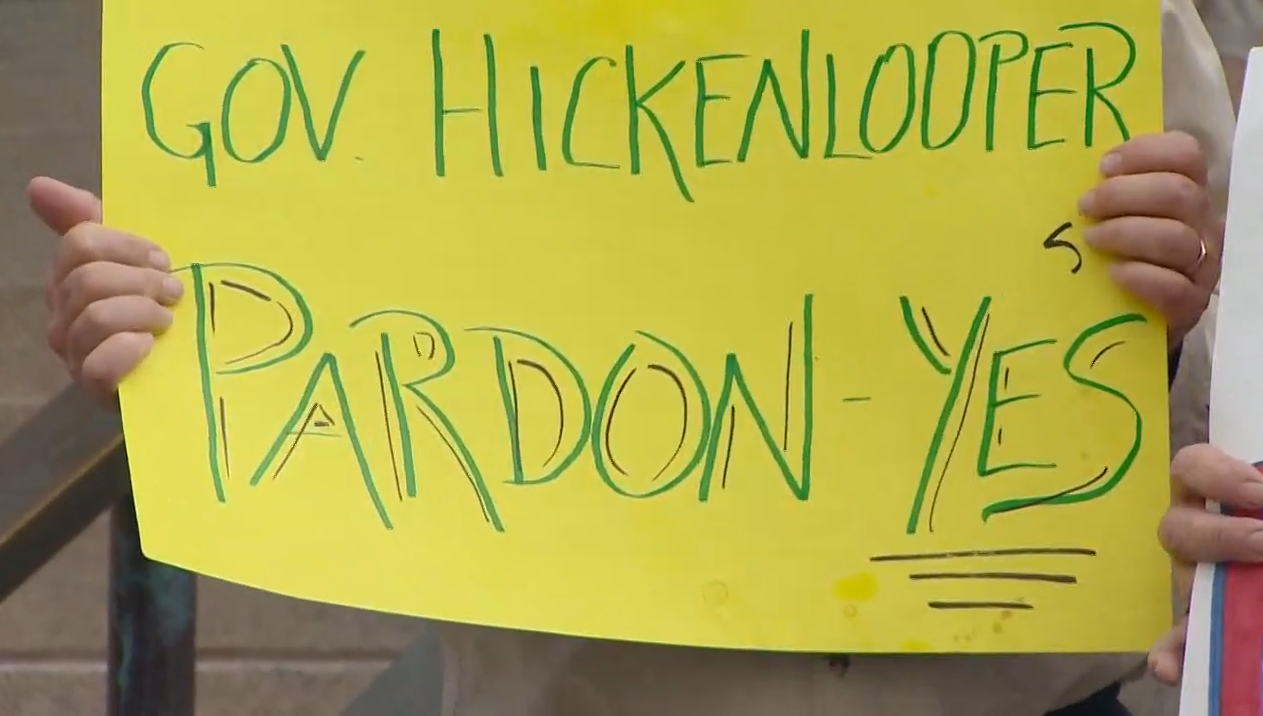 GOV. HICKENLOOPER
PARDON - YES